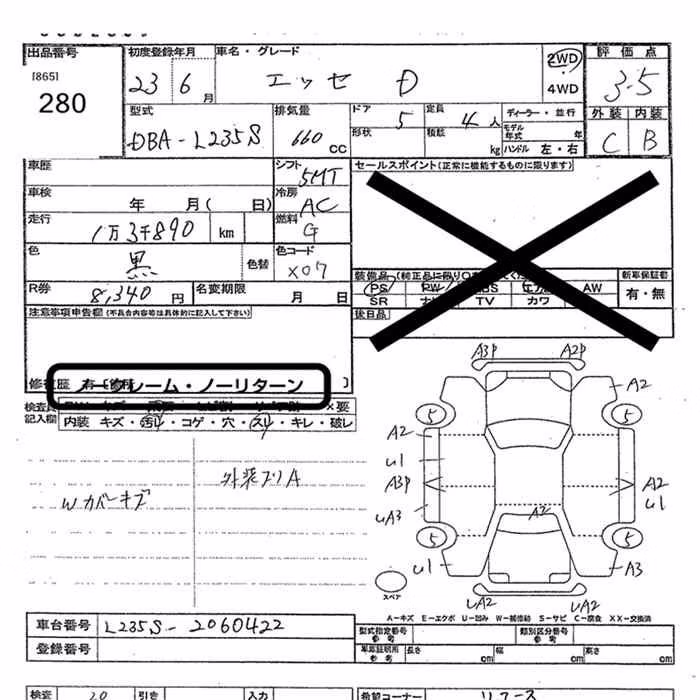 出品番号
[865]
280
初度登録年月
23 6月
車名・グレード
エッセ D
2WD
4WD
評価点
3.5
外装 内装
C B
型式
DBA-L235S
排気量
660 CC
ドア 5
形状
定員 4人
積載 kg
ディーラー・並行
モデル年式 年
ハンドル 左・右
車歴
シフト 5MT
車検 年 月( 日)
冷房 AC
走行 1万3千890 km
燃料 G
色 黒 色替
色コード X07
R券 8,340円
名変期限 月 日
セールスポイント(正常に機能するものに限ります)
装備品
PS PW エアB AW
SR TV カワ
新車保証書
有・無
後日品
注意事項申告欄(不具合内容等は具体的に記入して下さい)
修復歴
ノークレーム・ノーリターン
検査員記入欄
×要
内装 キズ・汚れ・コゲ・穴・スレ・キレ・破レ
Wカバーキズ
外装フリA
A3P A2P
A2
5 5
A2
U1
A3P
UA3
A2
U1
A2
5 5
U1 A3
UA2 UA2
スペア
A-キズ E-エクボ U-凹み W-補修跡 S-サビ C-腐食 XX-交換済
車台番号 L235S-2060422
登録番号
型式指定番号 参考
類別区分番号 参考
車庫証明用 参考
長さ cm
幅 cm
高さ cm
検査 20 引き 入力
希望コーナー リユース